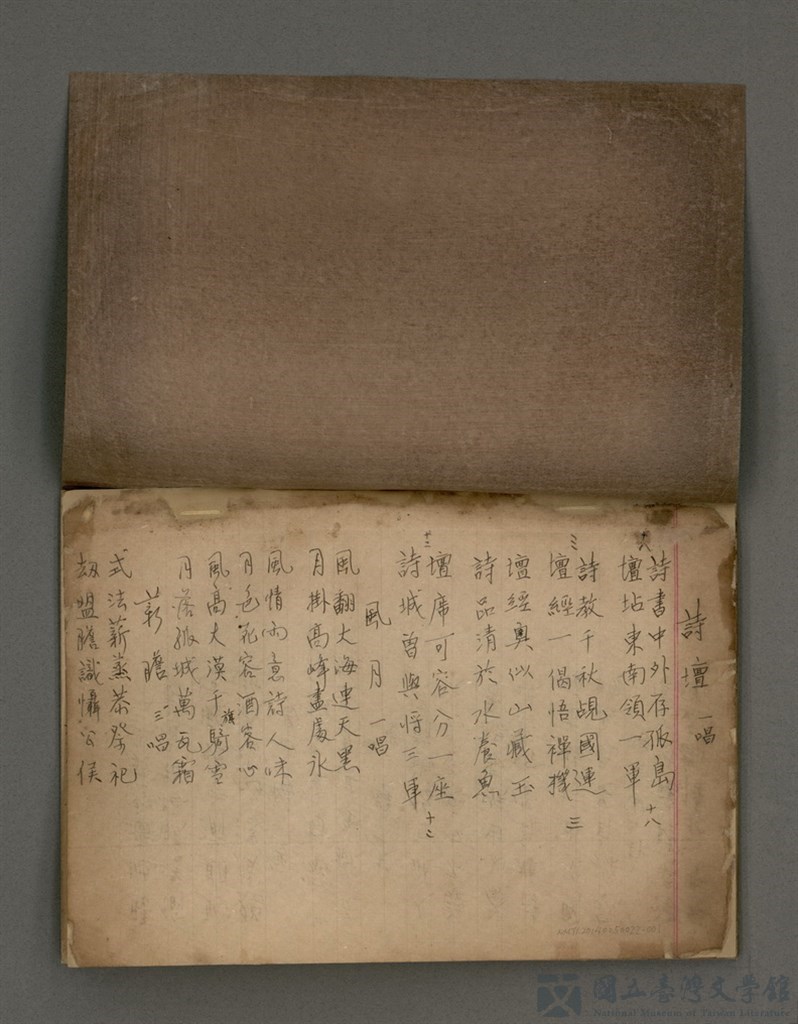 詩壇 一唱
詩書中外存孤島 十八
壇坫東南領一軍
三 詩教千秋覘國運
壇經一偈悟禪機 三
壇經奧似山藏玉
詩品清於水養魚
廿三 壇席可容分一座 十二
詩城曾與將三軍
風月 一唱
風翻大海連天黑
月掛高峰盡處永
風情雨意詩人味
月色花容酒客心
風高大漠千旗騎雪
月落孤城萬瓦霜
薪膽 三唱
式法薪蒸恭祭祀
劫盟膽識懾公侯
國立臺灣文學館
National Museum of Taiwan Literature